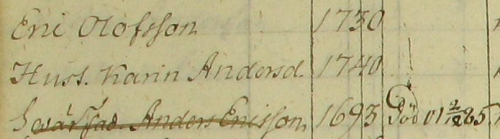 Eric Olofsson 1730
Hust. Karin Andersd. 1740
Svärfad. Anders Ericsson, 1693 Död